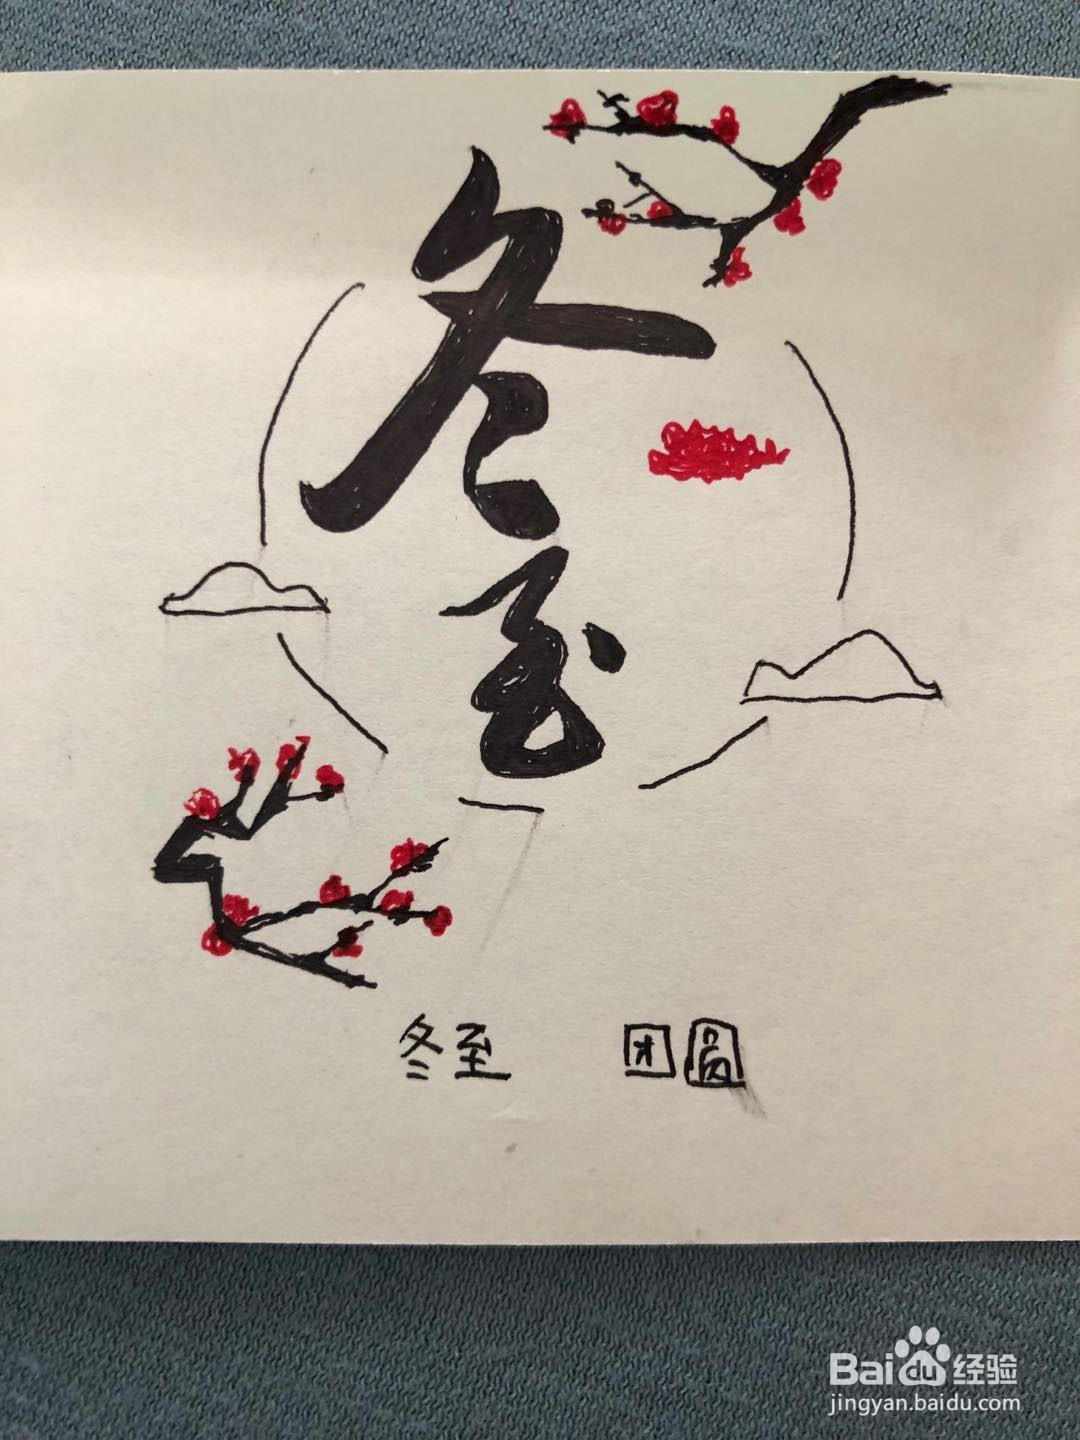 冬至
冬至 团圆
Baidu 经验
jingyan.baidu.com